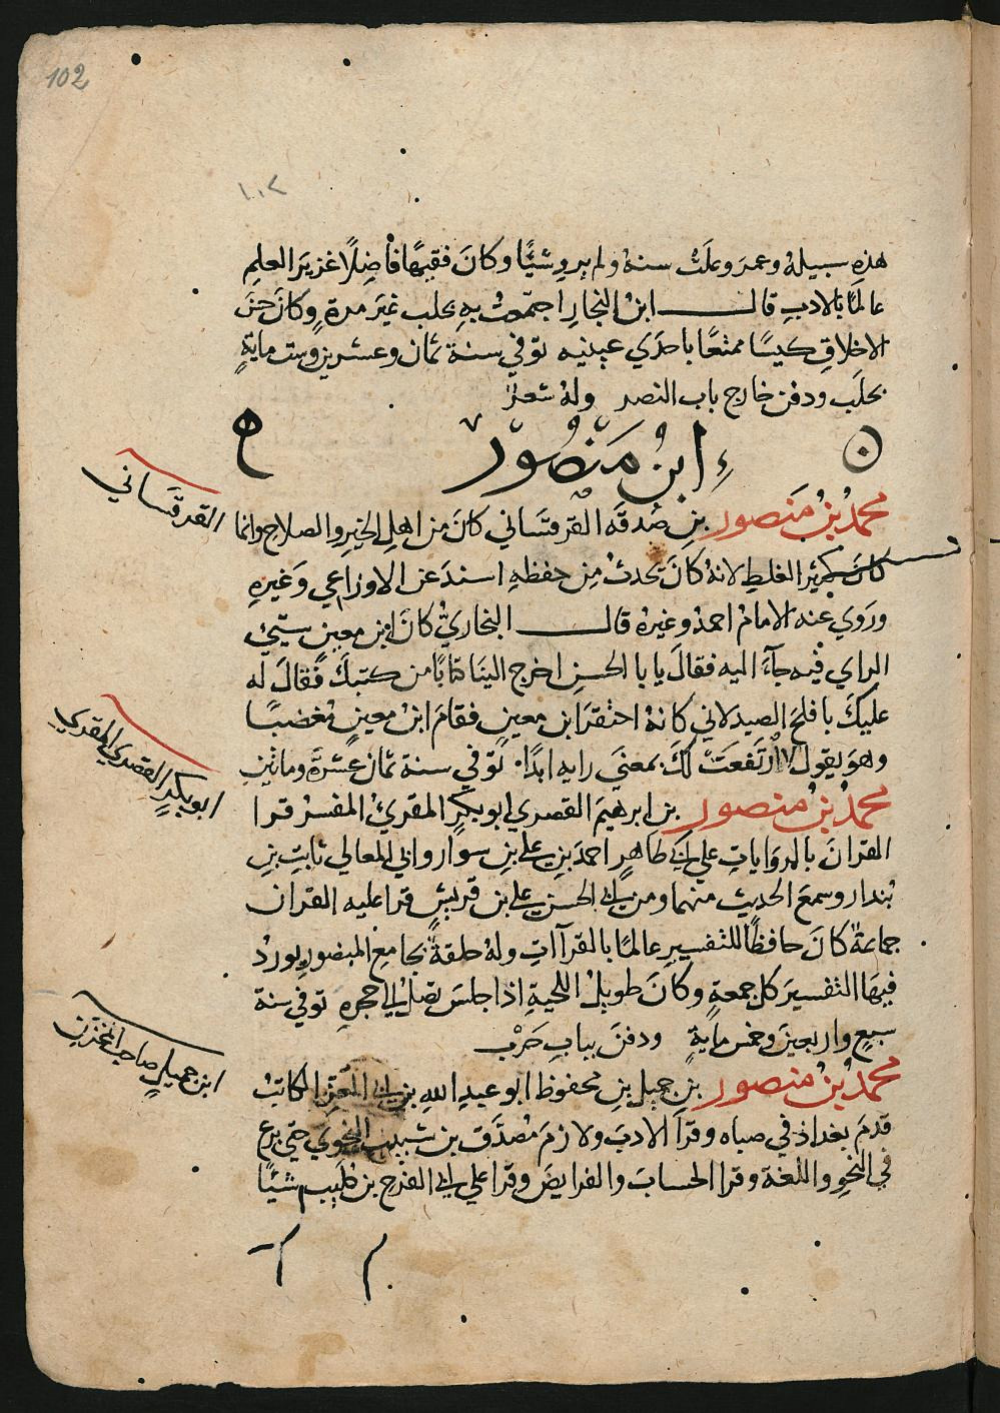 102
١٠٢
هذِهِ سبيلهُ وعمرَ وعلَتْ سنهُ ولم يروِ شيًّا وكانَ فقيهًا فاضِلًا غزيرَ العلمِ
عالمًا بالادبِ قالـــــ ابنُ النجارِ اجتمعتُ بهِ بحلب غيرَ مرةٍ وكانَ حسَنَ
الاخلاقِ كيسًا ممتعًا باحدَي عينيه توفي سنة ثمان وعشرين وست مايةٍ
بحلَب ودفن خارج باب النصر ولهُ شعرٌ
ابنُ مَنْصُورْ
محمدُ بنُ مَنصور بنِ صَدقَه القرقسَاني كانَ من اهلِ الخيرِ والصلاح وانما
القرقسَاني
كانَ كثيرَ الغلطِ لانهُ كانَ يحدثُ مِن حفظهِ اسندَ عن الاوزاعي وَغيرهِ
ورَوي عنه الامامُ احمدُ وغيرهُ قالـــــ البخاريُ كانَ ابن معينٍ سيئ
الراي فيه جآءَ اليه فقالَ يابا الحسنِ اخرج الينَا كتابًا من كتبكَ فقالَ له
عليكَ بافلحَ الصيدلاني كانهُ احتقرَ ابن معينٍ فقامَ ابنُ معينٍ مُغضَبًا
وهوَ يقول لا ارتَفعَتْ لكَ بمعنَي رايه ابدًا توفي سنة ثمان عشرَة وماتين
محمدُ بنُ منصور بن ابرهيمَ القصري ابو بكرٍ المقريُ المفسرُ قرا
ابو بكرٍ القصري المقري
القرانَ بالروَاياتِ علي ابي طاهرٍ احمدَ بنِ علي بنِ سوار وابي المعالي ثابتِ بنِ
بُندار وسمعَ الحديثَ منهما ومن ابي الحسن علي بن قريشٍ قرا عليه القران
جماعةٌ كانَ حافظًا للتفسيرِ عالمًا بالقرآاتِ ولهُ حلقةٌ بجامعِ المنصور يوردُ
فيهَا التفسيرَ كل جمعةٍ وكانَ طويلُ اللحيةِ اذا جلسَ تصلُ الي حجرهِ توفي سنة
سبعٍ واربعينَ وخمس مايةٍ ودفنَ ببابِ حَرْب
محمدُ بنُ منصور بنِ جميل بنِ محفوظ ابو عبدِ اللهِ بنِ ابي العز الكاتبُ
ابن جميلٍ صاحب المخزن
قدمَ بغداذ في صباه وقرا الادبَ ولازمَ مُصدَّق بن شبيبٍ النحوي حتي برع
في النحوِ واللغة وقرا الحسابَ والفرايضَ وقرا علي ابي الفرج بن كليبٍ شيًا